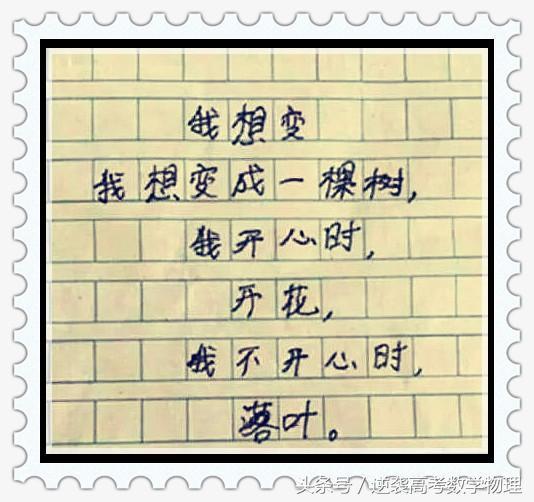 我想变
我想变成一棵树，
我开心时，
开花，
我不开心时，
落叶。
头条号 / 逆袭高考数学物理